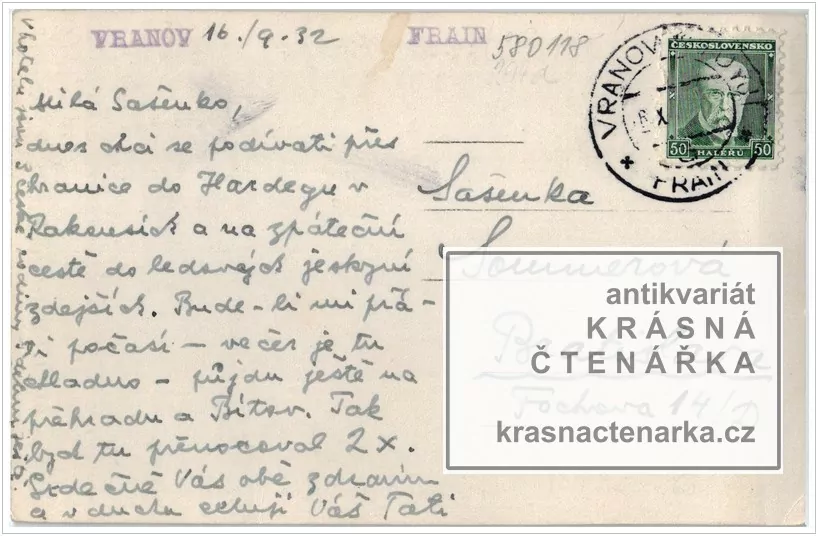 VRANOV 16./9.32 FRAIN 580118
Milá Sašenko,
dnes chci se podívati přes
hranice do Hardegu v
Rakousích a na zpáteční
cestě do ledových jeskyní
zdejších. Bude-li mi přá-
ti počasí – večer je tu
chladno – půjdu ještě na
přehradu a Bítov. Tak
bych tu přenocoval 2x.
Srdečně Vás obě zdravím
a v duchu celuji Váš Tati
V hotelu jsou 3 české rodiny
ČESKOSLOVENSKO
50 HALÉŘŮ 50
VRANOV
FRAIN
Sašenka
Sommerová
Bratislava
Fochova 14/
antikvariát
KRÁSNÁ
ČTENÁŘKA
krasnactenarka.cz